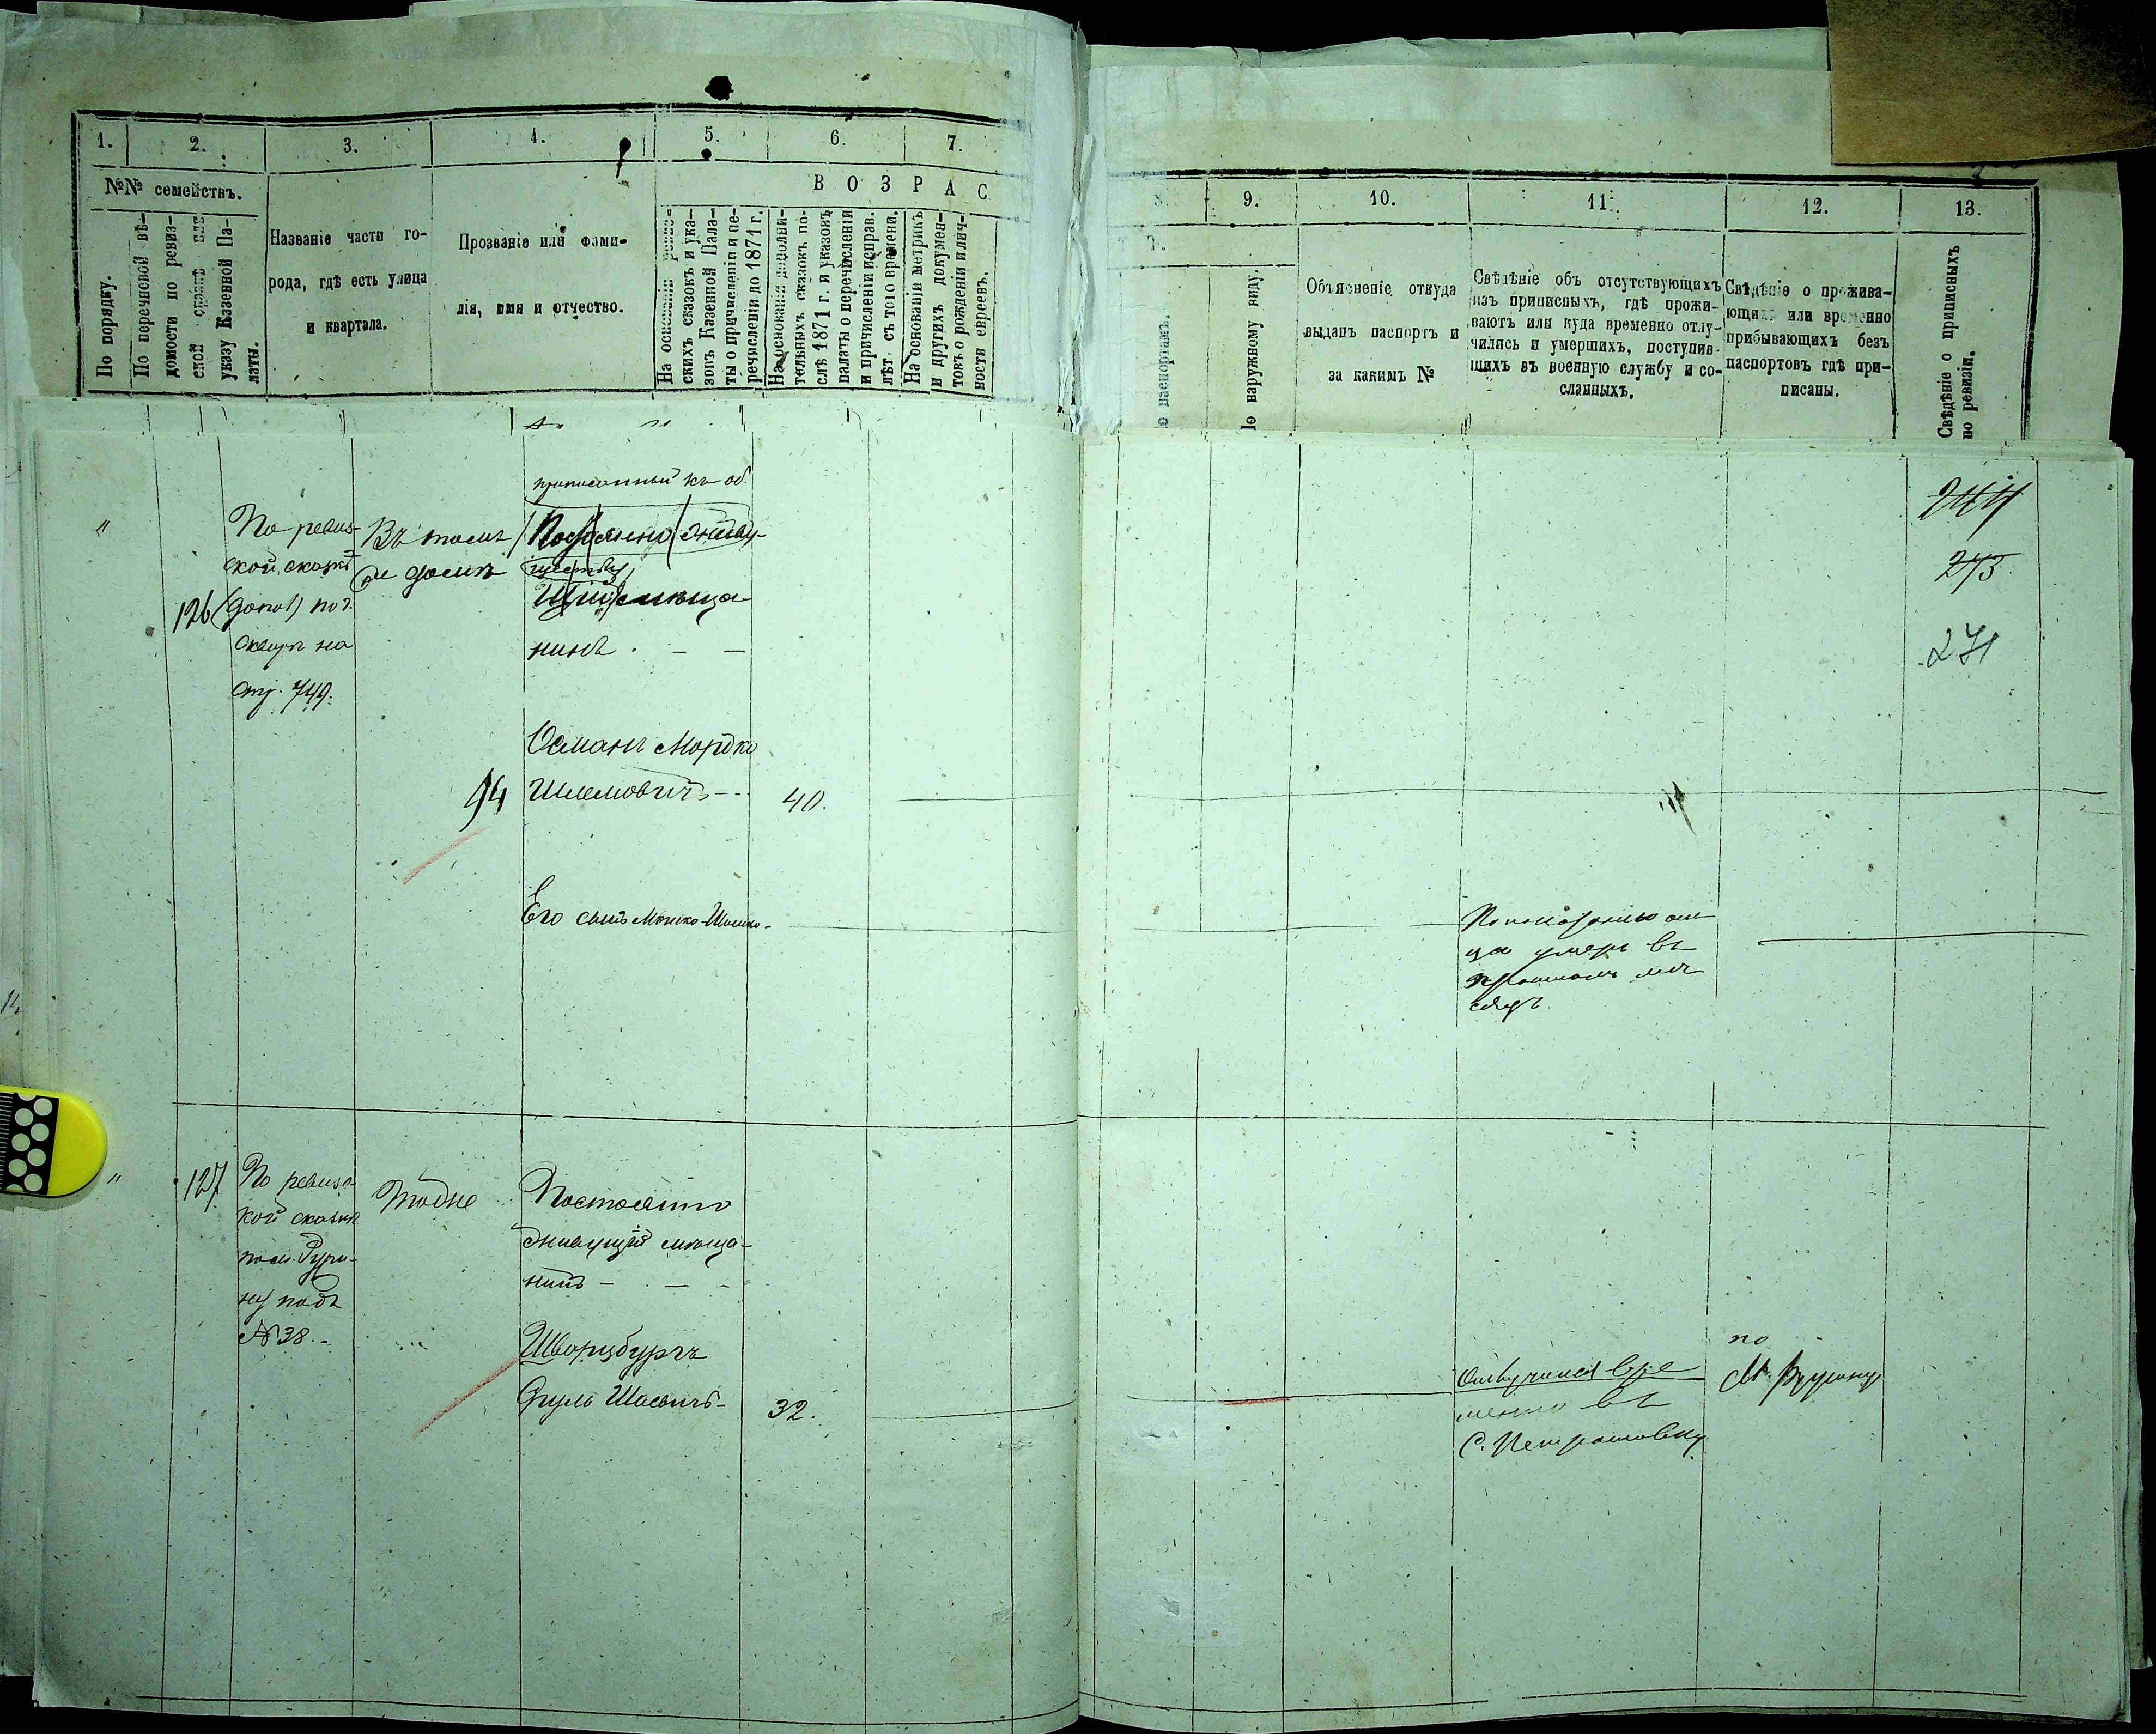 1.
2.
3.
4.
5.
6.
7.
№№ семействъ.
В О З Р А С
По порядку.
По перечневой вѣ-
домости по ревиз-
ской сказкѣ или
указу Казенной Па-
латы.
Названіе части го-
рода, гдѣ есть улица
и квартала.
Прозваніе или фами-
лія, имя и отчество.
На основаніи ревиз-
скихъ сказокъ и ука-
зовъ Казенной Пала-
ты о причисленіи и пе-
речисленіи до 1871 г.
На основаніи дополни-
тельныхъ сказокъ по-
слѣ 1871 г. и указовъ
палаты о перечисленіи
и причисленіи исправ.
лѣт. съ того времени.
На основаніи метрикъ
и другихъ докумен-
товъ о рожденіи и лич-
ности евреевъ.
8.
9.
10.
11.
12.
13.
Т.
о паспортамъ.
о наружному виду.
Объясненіе откуда
выданъ паспортъ и
за какимъ №
Свѣдѣніе объ отсутствующихъ
изъ приписныхъ, гдѣ прожи-
ваютъ или куда временно отлу-
чились и умершихъ, поступив-
шихъ въ военную службу и со-
сланныхъ.
Свѣдѣніе о прожива-
ющихъ или временно
прибывающихъ безъ
паспортовъ гдѣ при-
писаны.
Свѣдѣніе о приписныхъ
по ревизіи.
"
126
По ревиз-
ской сказкѣ
на
стр. 749.
Въ томъ
же домѣ
приписанный къ об.
Постоянно живу-
мѣща-
нинъ. – –
Османъ Мордко
94
Шлемовичъ – 40.
Его сынъ
По показанію от-
ца умеръ въ
прошломъ мѣ-
сяцѣ.
273
271
"
127
По ревиз-
кой сказкѣ
подъ
№ 38. –
Тоже
Постоянно
живущій мѣща-
нинъ – – –
Шворцбургъ
32.
Отлучился вре
менно въ
С. Петрашовку
по
М.